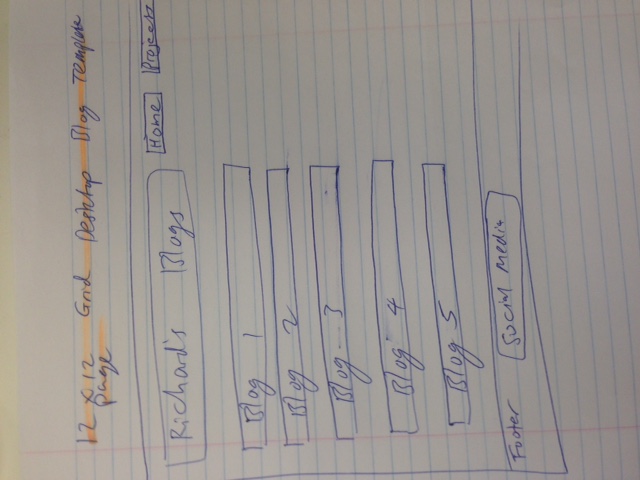 12 x 12 Grid Desktop Blog Template
page
Richard's Blogs
Home
Projects
Blog 1
Blog 2
Blog 3
Blog 4
Blog 5
Footer
Social Media